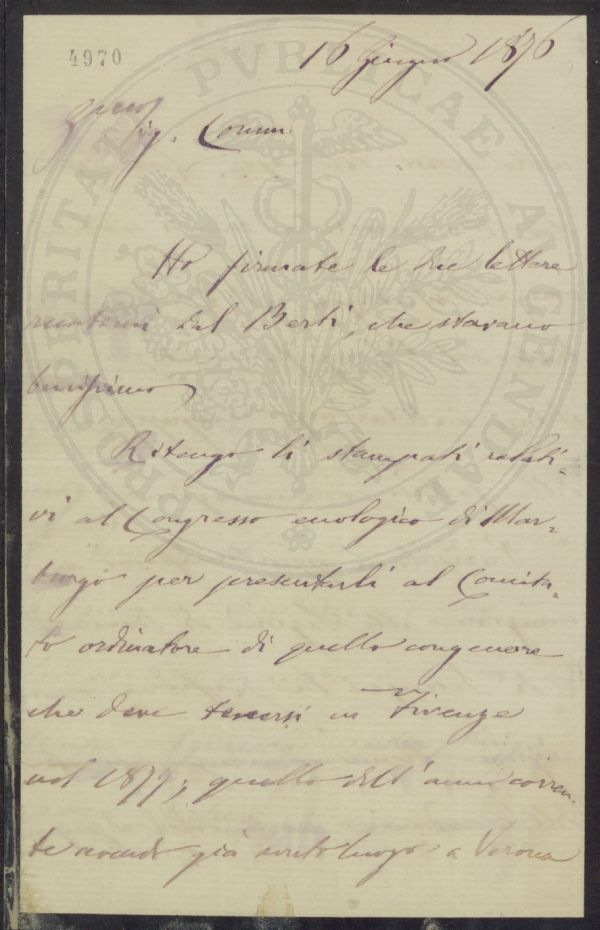 4970
16 Giugno 1876
Sig. Comm.
Ho firmate le due lettere
dal Berti, che stavano
benissimo
Ritengo li stampati relati-
vi al Congresso enologico di Mar-
burgo per presentarli al Comita-
to ordinatore di quello congenere
che deve tenersi in Firenze
nel 1877; quello dell'anno corren-
te avendo già avuto luogo a Verona
PROSPERITATI PVBLICAE AVGENDAE